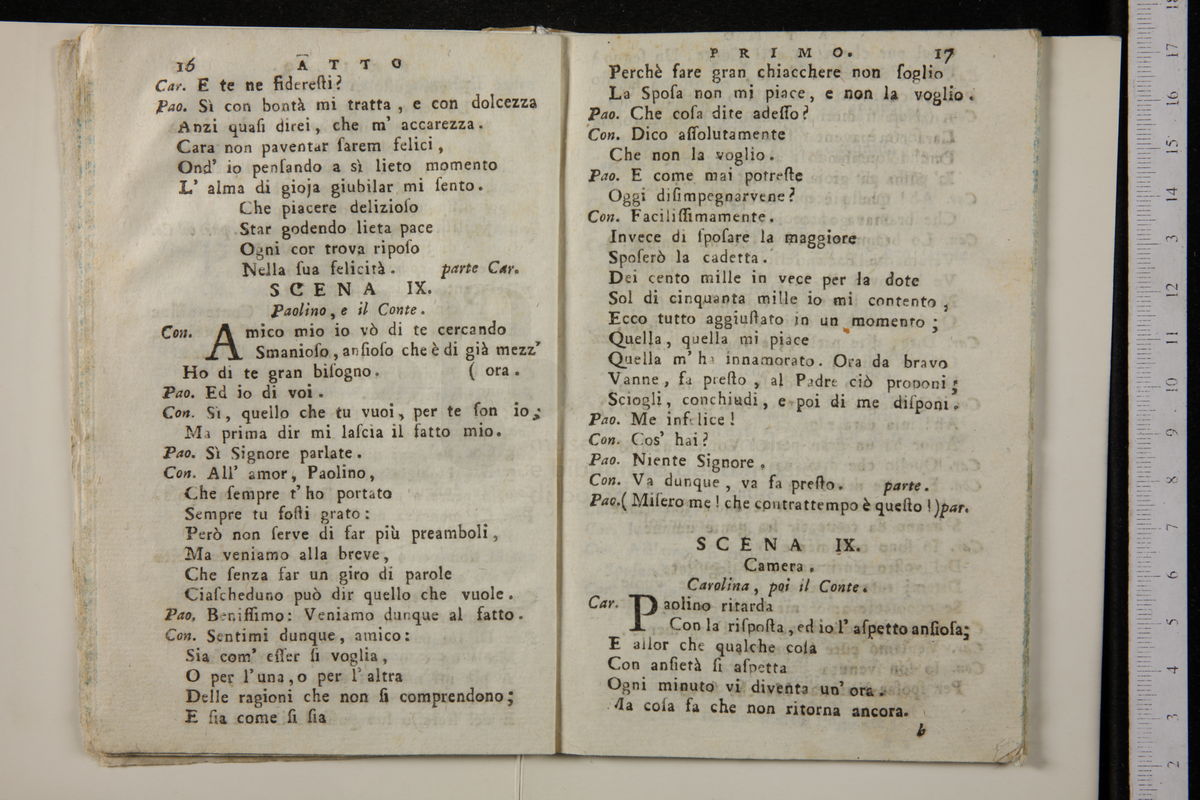 16 ATTO
Car. E te ne fidereſti?
Pao. Sì con bontà mi tratta, e con dolcezza
Anzi quaſi direi, che m' accarezza.
Cara non paventar ſarem felici,
Ond' io penſando a sì lieto momento
L' alma di gioja giubilar mi ſento.
Che piacere delizioſo
Star godendo lieta pace
Ogni cor trova ripoſo
Nella ſua felicità. parte Car.
SCENA IX.
Paolino, e il Conte.
Con. Amico mio io vò di te cercando
Smanioſo, anſioſo che è di già mezz'
Ho di te gran biſogno. ( ora.
Pao. Ed io di voi.
Con. Sì, quello che tu vuoi, per te ſon io;
Ma prima dir mi laſcia il fatto mio.
Pao. Sì Signore parlate.
Con. All' amor, Paolino,
Che ſempre t' ho portato
Sempre tu foſti grato:
Però non ſerve di far più preamboli,
Ma veniamo alla breve,
Che ſenza far un giro di parole
Ciaſcheduno può dir quello che vuole.
Pao. Beniſſimo: Veniamo dunque al fatto.
Con. Sentimi dunque, amico:
Sia com' eſſer ſi voglia,
O per l' una, o per l' altra
Delle ragioni che non ſi comprendono;
E ſia come ſi ſia
PRIMO. 17
Perchè fare gran chiacchere non ſoglio
La Spoſa non mi piace, e non la voglio.
Pao. Che coſa dite adeſſo?
Con. Dico aſſolutamente
Che non la voglio.
Pao. E come mai potreſte
Oggi diſimpegnarvene?
Con. Faciliſſimamente.
Invece di ſpoſare la maggiore
Spoſerò la cadetta.
Dei cento mille in vece per la dote
Sol di cinquanta mille io mi contento,
Ecco tutto aggiuſtato in un momento;
Quella, quella mi piace
Quella m' ha innamorato. Ora da bravo
Vanne, fa preſto, al Padre ciò proponi;
Sciogli, conchiudi, e poi di me diſponi.
Pao. Me infelice!
Con. Cos' hai?
Pao. Niente Signore.
Con. Va dunque, va fa preſto. parte.
Pao. ( Miſero me! che contrattempo è queſto!) par.
SCENA IX.
Camera.
Carolina, poi il Conte.
Car. Paolino ritarda
Con la riſpoſta, ed io l' aſpetto anſioſa;
E allor che qualche coſa
Con anſietà ſi aſpetta
Ogni minuto vi diventa un' ora.
Ma coſa fa che non ritorna ancora.
b